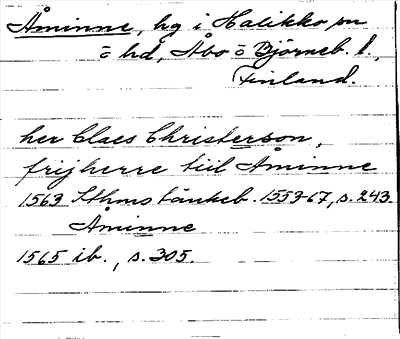 Åminne, hg i Halikko sn
o hd, Åbo o Björneb. l.,
Finland.
her Claes Christerson,
frijherre till Åminne
1563 Sthms tänkeb. 1553-67, s. 243.
Åminne
1565 ib., s. 305.